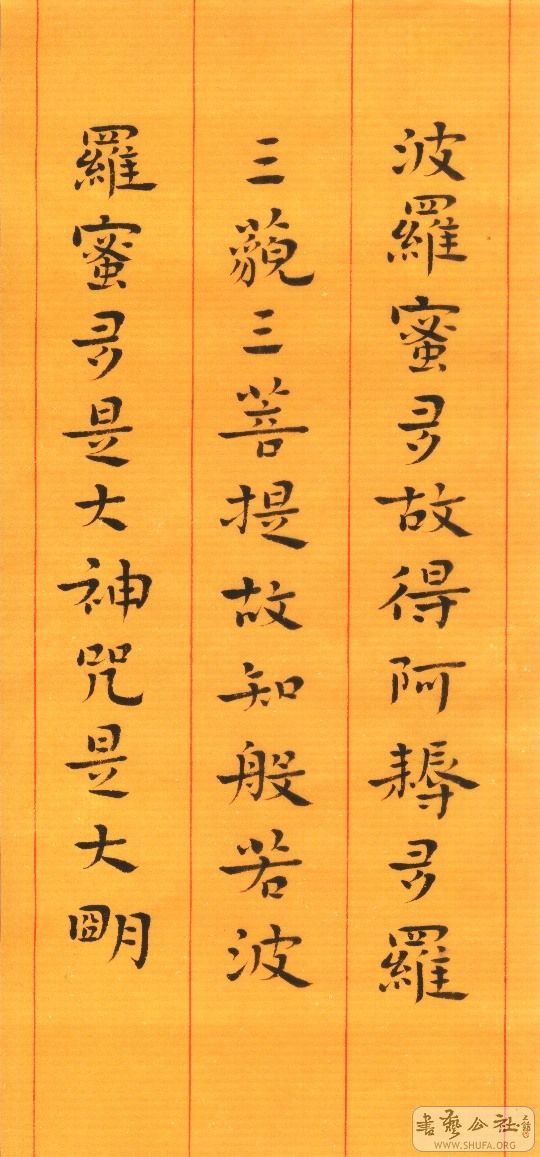 波羅蜜多故得阿耨多羅
三藐三菩提故知般若波
羅蜜多是大神咒是大明
書藝公社
WWW.SHUFA.ORG